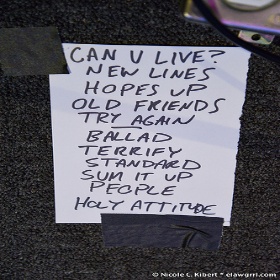 CAN U LIVE?
NEW LINES
HOPES UP
OLD FRIENDS
TRY AGAIN
BALLAD
TERRIFY
STANDARD
SUM IT UP
PEOPLE
HOLY ATTITUDE
© Nicole C. Kibert • elawgrrl.com